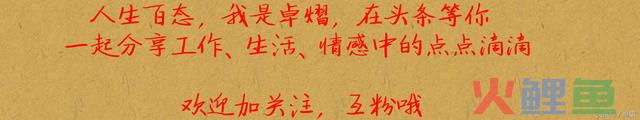 人生百态，我是卓熠，在头条等你
一起分享工作、生活、情感中的点点滴滴
欢迎加关注，互粉哦
火鲤鱼